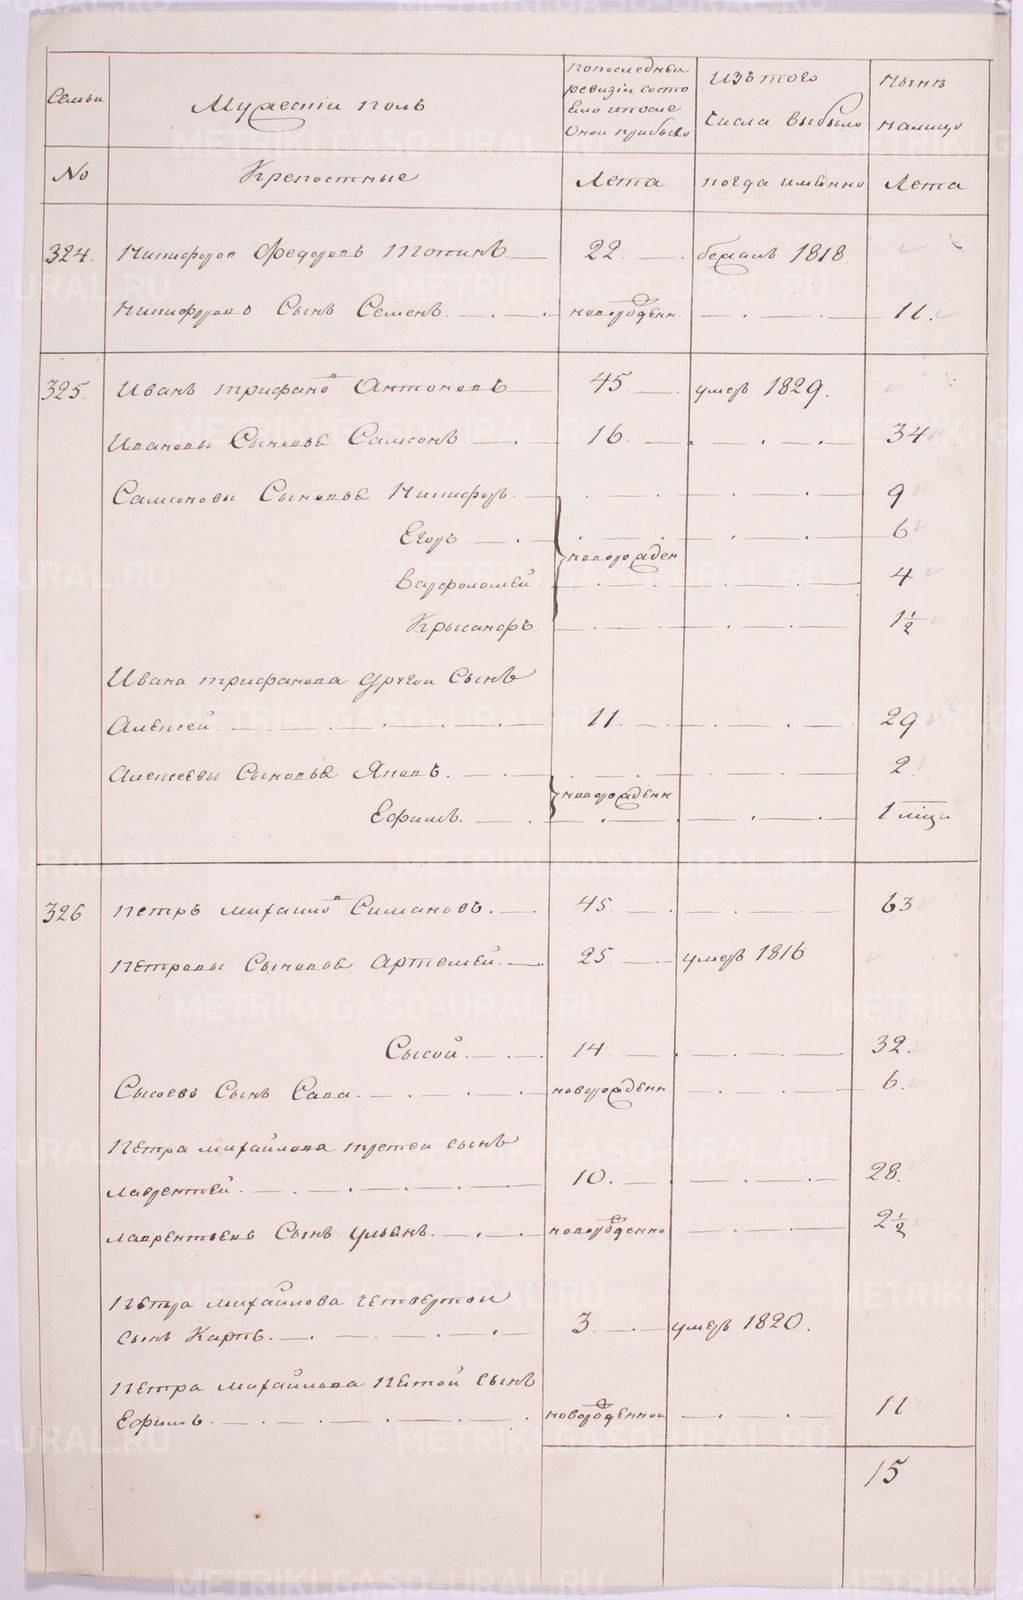 Семьи
Мужескій полъ
Попоследней
ревизіи состо
яло ипосле
Оной прибыло
Изъ того
числа выбыло
Нынѣ
налицо
No
Крепостные
Лета
когда именно
Лета
324. Никифоръ Федоровъ 22 бежалъ 1818
Никифорово Сынъ Семенъ. новорожденн 11.
325. Иванъ трифано въ Антоновъ 45 умеръ 1829.
Ивановы Сыновья Самсонъ 16 34
Самсоновы Сыновья Никифоръ. 9
Егоръ 6
новорожден
Варфоломей 4
Крысанфъ 1½
Ивана трифанова другой Сынъ
Алексей 11. 29
Алексеевы Сыновья Яковъ. 2.
новорожденн
Ефимъ. 1 мцы
326 Петръ михайло въ Симановъ. 45 63
Петровы Сыновья Артемей. 25 умеръ 1816
Сысой. 14 32.
Сысоевъ Сынъ Сава. новорожденн 6.
Петра михайлова третей сынъ
лаврентей. 10. 28.
лаврентьевъ Сынъ ульянъ. новорожденно 2½
Петра михайлова четвертой
сынъ Карпъ. 3 умеръ 1820.
Петра михайлова пятой сынъ
Ефимъ. новорожденной 11
15
METRIKI.GASO-URAL.RU